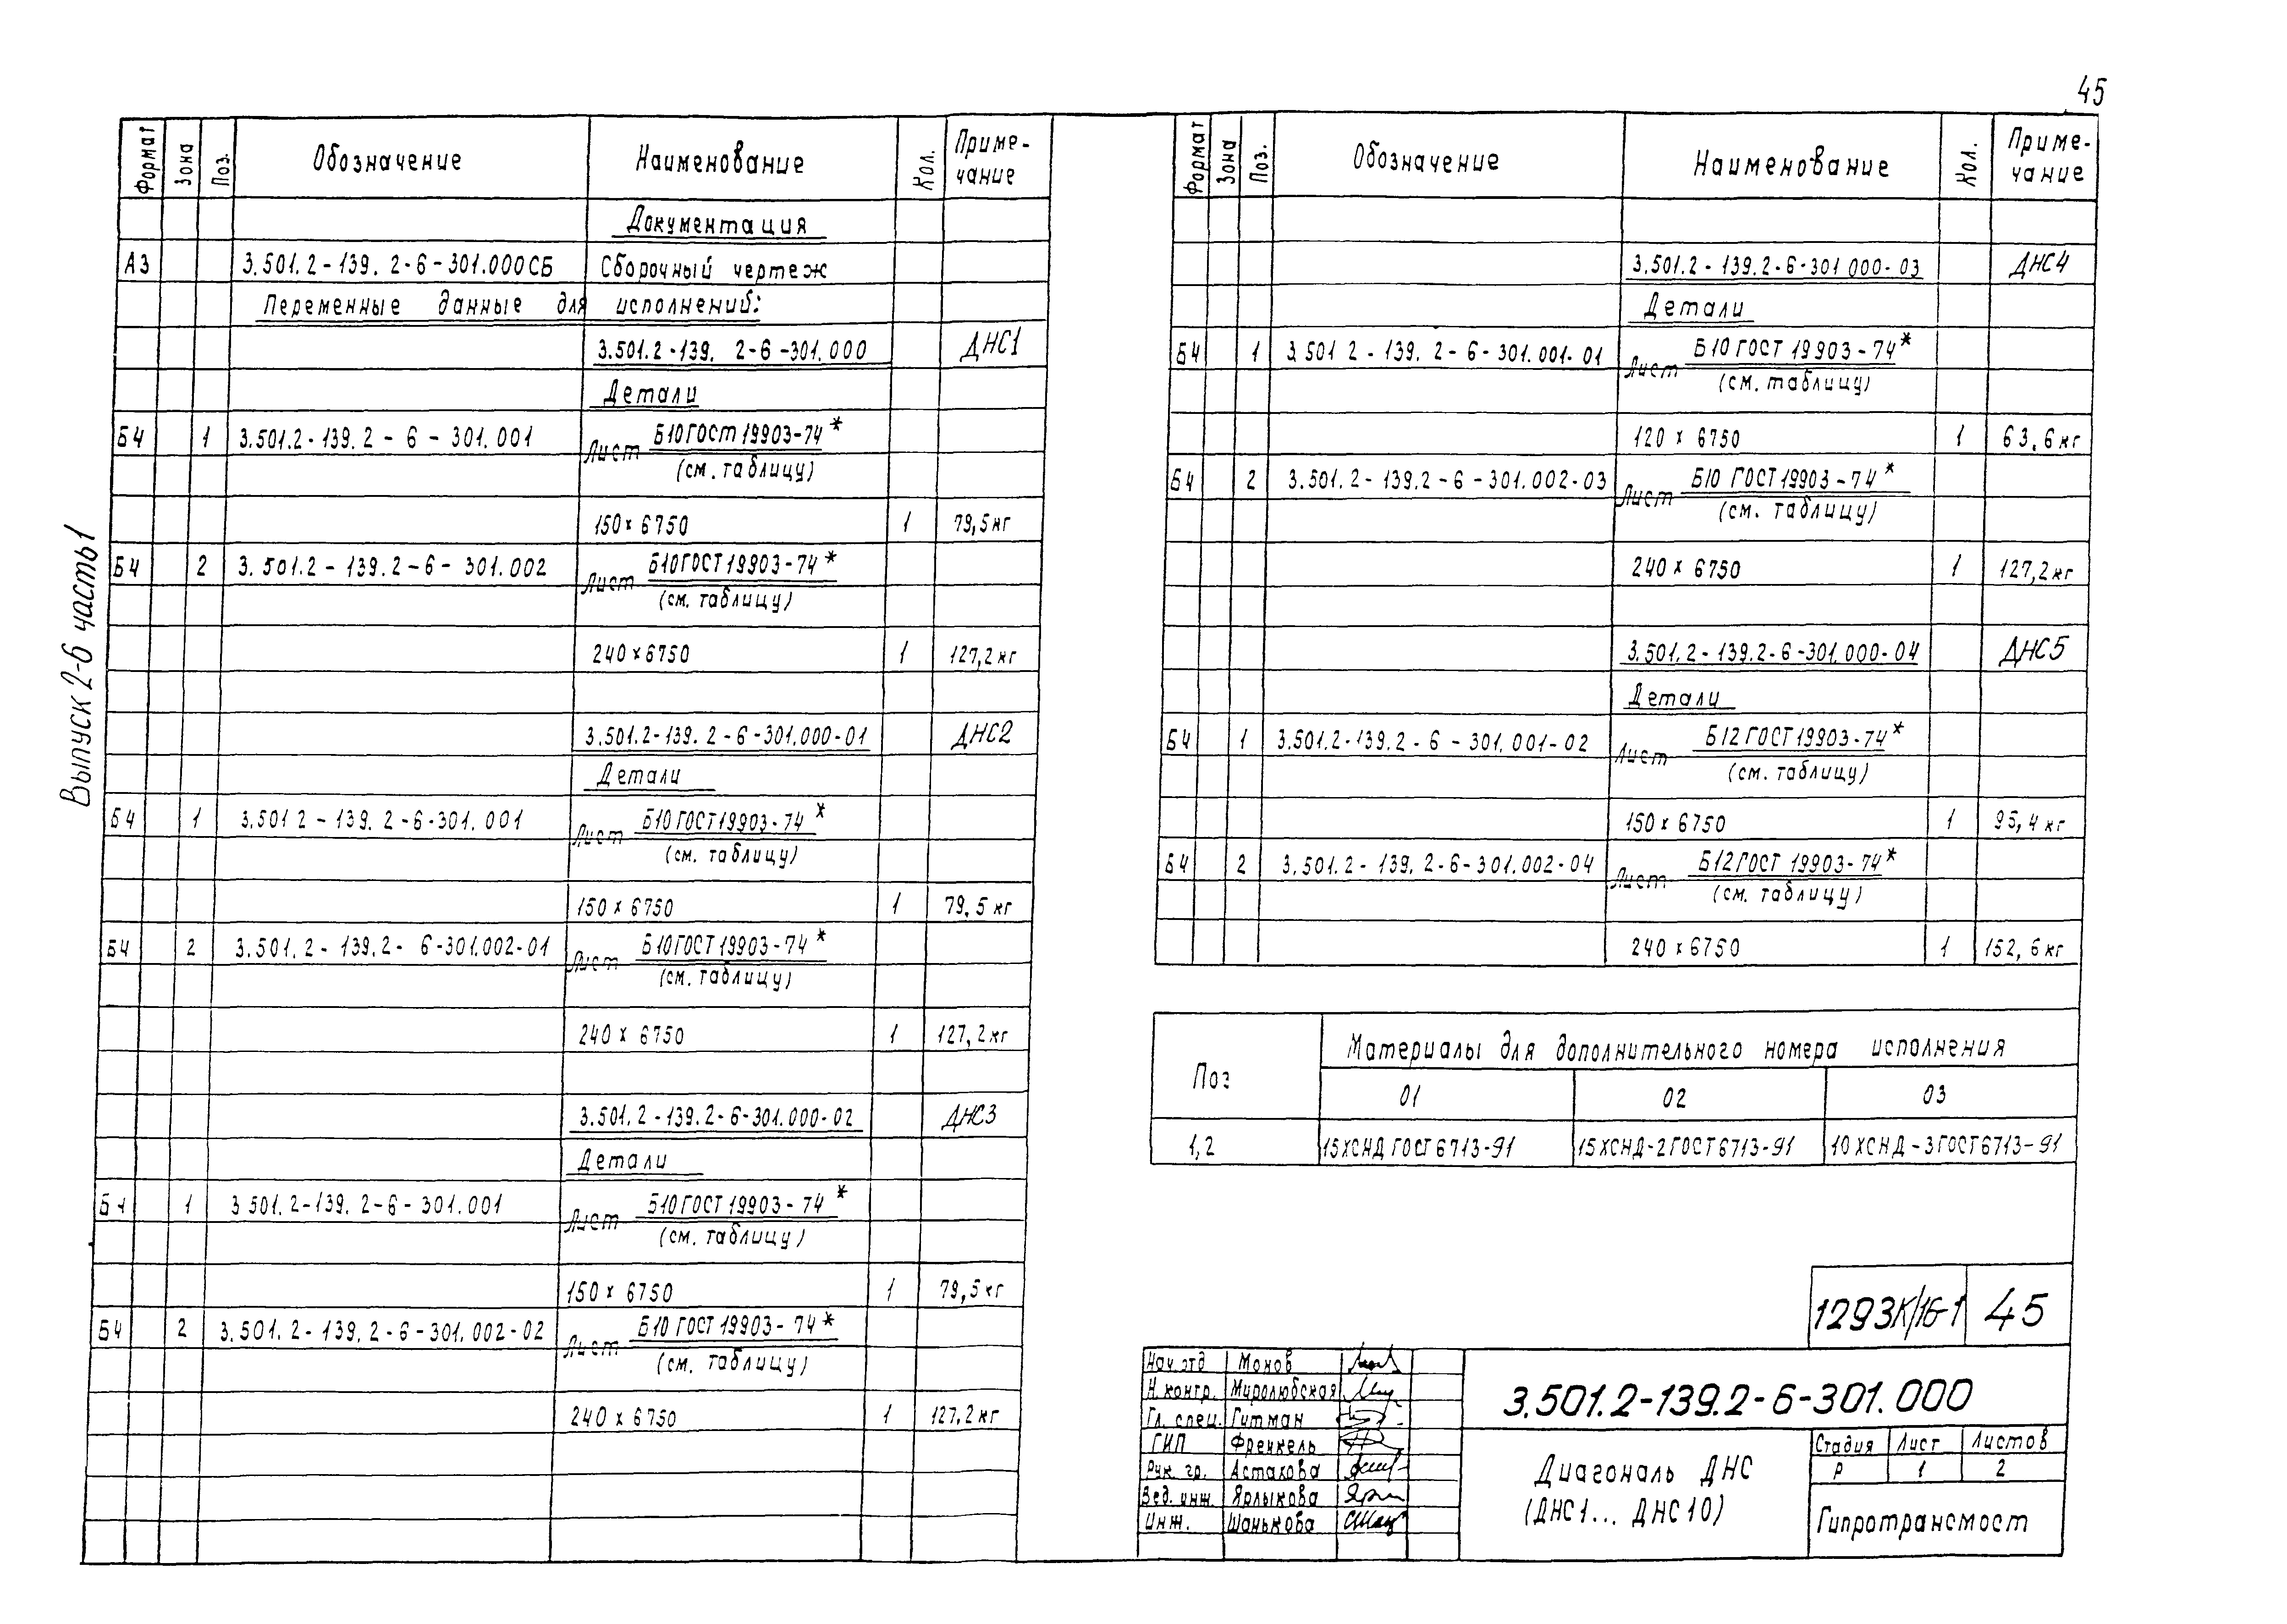 45
Выпуск 2-6 часть1
Формат Зона Поз. Обозначение Наименование Кол. Приме-
чание
Документация
А3 3.501.2-139.2-6-301.000СБ Сборочный чертеж
Переменные данные для исполнений:
3.501.2-139.2-6-301.000 ДНС1
Детали
Б4 1 3.501.2-139.2-6-301.001 Лист Б10 ГОСТ 19903-74*
(см. таблицу)
150х6750 1 79,5 кг
Б4 2 3.501.2-139.2-6-301.002 Лист Б10 ГОСТ 19903-74*
(см. таблицу)
240х6750 1 127,2 кг
3.501.2-139.2-6-301.000-01 ДНС2
Детали
Б4 1 3.501 2-139.2-6-301.001 Лист Б10 ГОСТ 19903-74*
(см. таблицу)
150х6750 1 79,5 кг
Б4 2 3.501.2-139.2-6-301.002-01 Лист Б10 ГОСТ 19903-74*
(см. таблицу)
240х6750 1 127,2 кг
3.501.2-139.2-6-301.000-02 ДНС3
Детали
Б4 1 3 501.2-139.2-6-301.001 Лист Б10 ГОСТ 19903-74*
(см. таблицу)
150х6750 1 79,5 кг
Б4 2 3.501.2-139.2-6-301.002-02 Лист Б10 ГОСТ 19903-74*
(см. таблицу)
240х6750 1 127,2 кг
Формат Зона Поз. Обозначение Наименование Кол. Приме-
чание
3.501.2-139.2-6-301 000-03 ДНС4
Детали
Б4 1 3.501 2-139.2-6-301.001-01 Лист Б10 ГОСТ 19903-74*
(см. таблицу)
120х6750 1 63,6 кг
Б4 2 3.501.2-139.2-6-301.002-03 Лист Б10 ГОСТ 19903-74*
(см. таблицу)
240х6750 1 127,2 кг
3.501.2-139.2-6-301.000-04 ДНС5
Детали
Б4 1 3.501.2-139.2-6-301.001-02 Лист Б12 ГОСТ 19903-74*
(см. таблицу)
150х6750 1 95,4 кг
Б4 2 3.501.2-139.2-6-301.002-04 Лист Б12 ГОСТ 19903-74*
(см. таблицу)
240х6750 1 152,6 кг
Поз Материалы для дополнительного номера исполнения
01 02 03
1,2 15ХСНД ГОСТ 6713-91 15ХСНД-2 ГОСТ 6713-91 10ХСНД-3 ГОСТ 6713-91
1293К/16-1 45
Нач. отд Монов
Н. контр. Миролюбская
Гл. спец. Гитман
ГИП Френкель
Рук. гр. Астахова
Вед. инж. Ярлыкова
Инж. Шанькова
3.501.2-139.2-6-301.000
Диагональ ДНС
(ДНС1... ДНС10)
Стадия Лист Листов
Р 1 2
Гипротрансмост